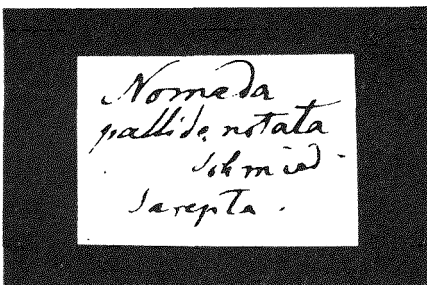 Nomada
pallide notata
Schmied.
Sarepta.